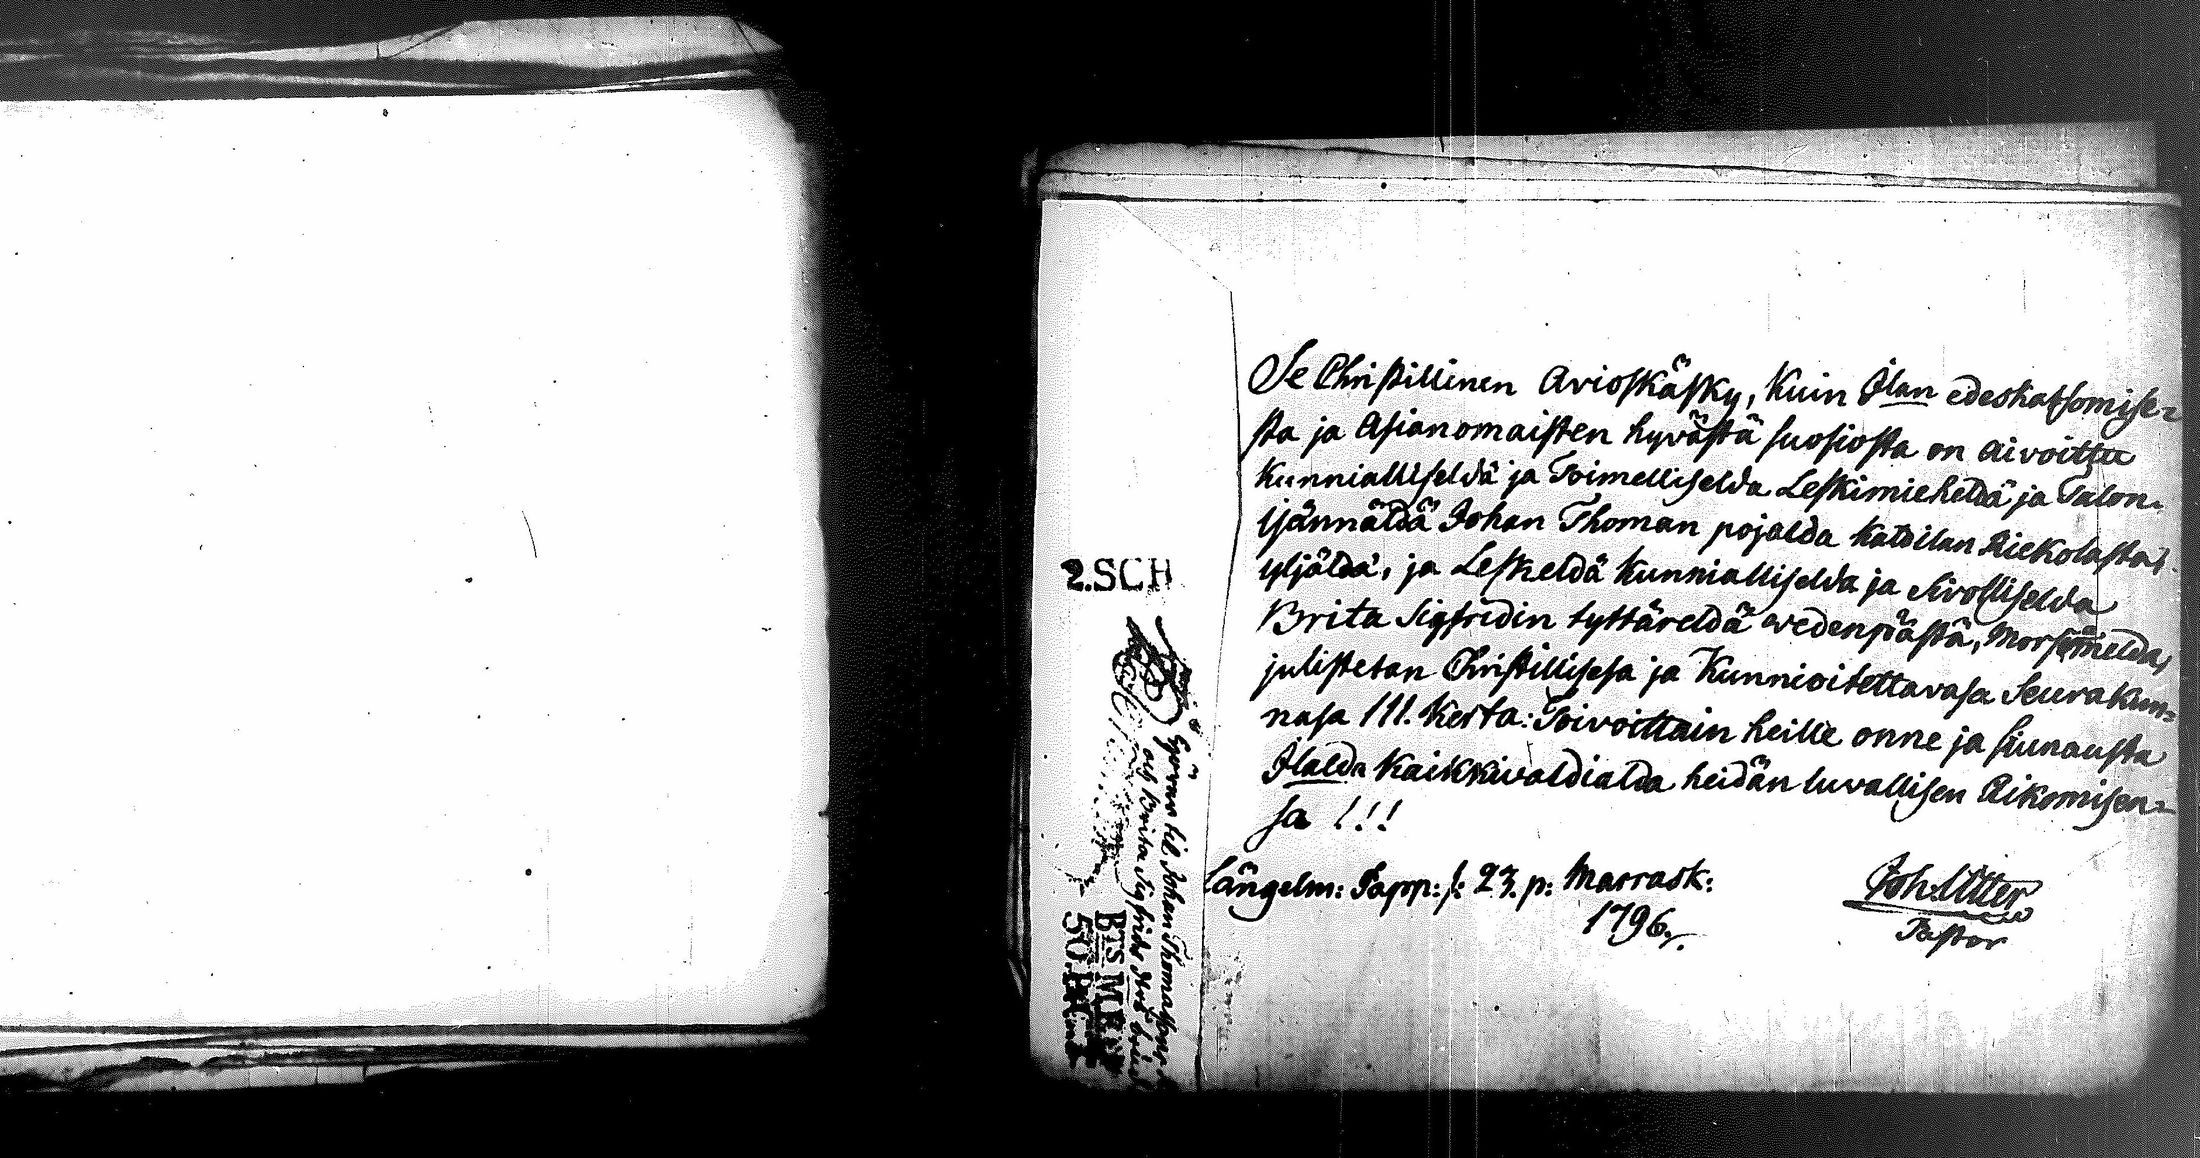 Se Christillinen Avioskäsky, kuin Jlan edeskatsomise-
sta ja Asianomaisten hyvästä suosiosta on aivoittu
kunnialliselda ja Toimelliselda Leskimieheldä ja Talon-
Jsännäldä Johan Thoman pojalda Riekolasta,
yljäldä, ja Leskeldä kunnialliselda ja Sivolliselda
Brita Sigfridin tyttäreldä vedenpäästä,
julistetan Christillisesa ja Kunnioitettavasa Seurakun-
nasa III. kerta: Toivoittain heille onne ja siunausta
Jlalda kaikkivaldialda heidän luvallisen Aikomisen-
sa !!!
Längelm: Papp: 23. p: Marrask:
1796.
Joh. Utter
Pastor
2.SCH
til Johan Thomas
och Brita Sigfrids
50.